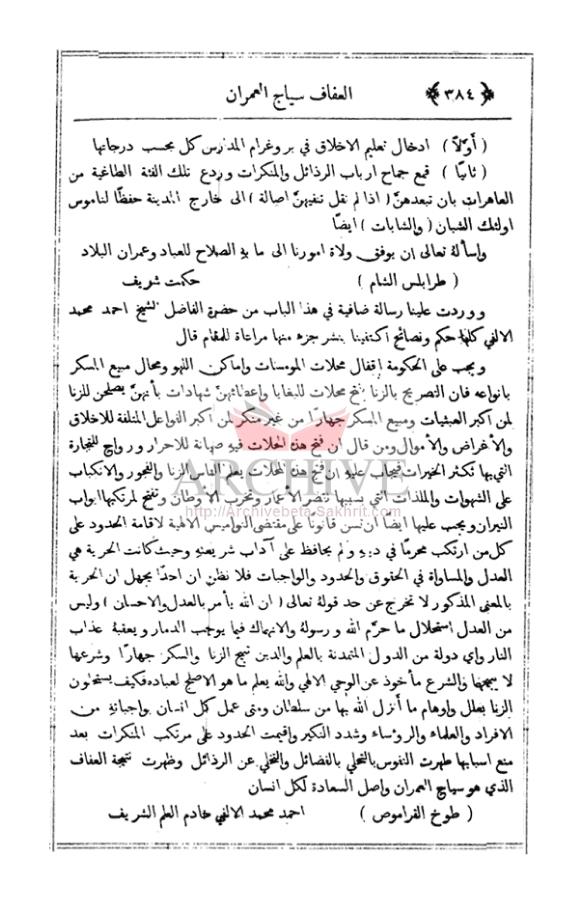 ﴿ ٣٨٤ ﴾ العفاف سياج العمران
( أولاً ) ادخال تعليم الاخلاق في بروغرام المدارس كل بحسب درجاتها
( ثانيًا ) قمع جماح ارباب الرذائل والمنكرات وردع تلك الفئة الطاغية من
العاهرات بان تبعدهنَّ ( اذا لم نقل تنفيهنَّ اصالة ) الى خارج المدينة حفظًا لناموس
اولئك الشبان ( والشابات ) ايضًا
واسألهُ تعالى ان يوفق ولاة امورنا الى ما به الصلاح للعباد وعمران البلاد
( طرابلس الشام ) حكمت شريف
ووردت علينا رسالة ضافية في هذا الباب من حضرة الفاضل الشيخ احمد محمد
الالفي كلها حكم ونصائح اكتفينا بنشر جزء منها مراعاة للمقام قال
ويجب على الحكومة إقفال محلات المومسات واماكن اللهو ومحال مبيع المسكر
بانواعه فان التصريح بالزنا بفتح محلات للبغايا وإعطائهنَّ شهادات بأنهنَّ يصلحن للزنا
لمن اكبر العبثيات ومبيع المسكر جهارًا من غير منكر لمن اكبر الفواعل المتلفة للاخلاق
والأغراض والأموال ومن قال ان فتح هذه المحلات فيهِ صيانة للاحرار ورواج للتجارة
التي بها تكثر الخيرات فيجاب عليهِ ان فتح هذه المحلات يعلم الناس الزنا والفجور والانكباب
على الشهوات والملذات التي بسببها تقصر الأعمار وتخرب الأوطان وتفتح لمرتكبها ابواب
النيران ويجب عليها ايضًا ان تسن قانونًا على مقتضى النواميس الالهية لاقامة الحدود على
كل من ارتكب محرمًا في دينهِ ولم يحافظ على آداب شريعتهِ وحيث كانت الحرية هي
العدل والمساواة في الحقوق والحدود والواجبات فلا نظن ان احدًا يجهل ان الحرية
بالمعنى المذكور لا تخرج عن حد قولهِ تعالى ( ان الله يأمر بالعدل والاحسان ) وليس
من العدل استحلال ما حرَّم الله ورسولهُ والانهماك فيما يوجب الدمار ويعقبهُ عذاب
النار واي دولة من الدول المتمدنة بالعلم والدين تبيح الزنا والسكر جهارًا وشرعها
لا يبيحها والشرع مأخوذ عن الوحي الالهي والله يعلم ما هو الاصلح لعباده فكيف يستحلون
الزنا بعلل واوهام ما أنزل الله بها من سلطان ومتى عمل كل انسان بواجباته من
الافراد والعلماء والرؤساء وشدد النكير واقيمت الحدود على مرتكب المنكرات بعد
منع اسبابها طهرت النفوس بالتحلي بالفضائل والتخلي عن الرذائل وظهرت نتيجة العفاف
الذي هو سياج العمران واصل السعادة لكل انسان
( طوخ القراموص ) احمد محمد الالفي خادم العلم الشريف
ARCHIVE
http://Archivebeta.Sakhrit.com